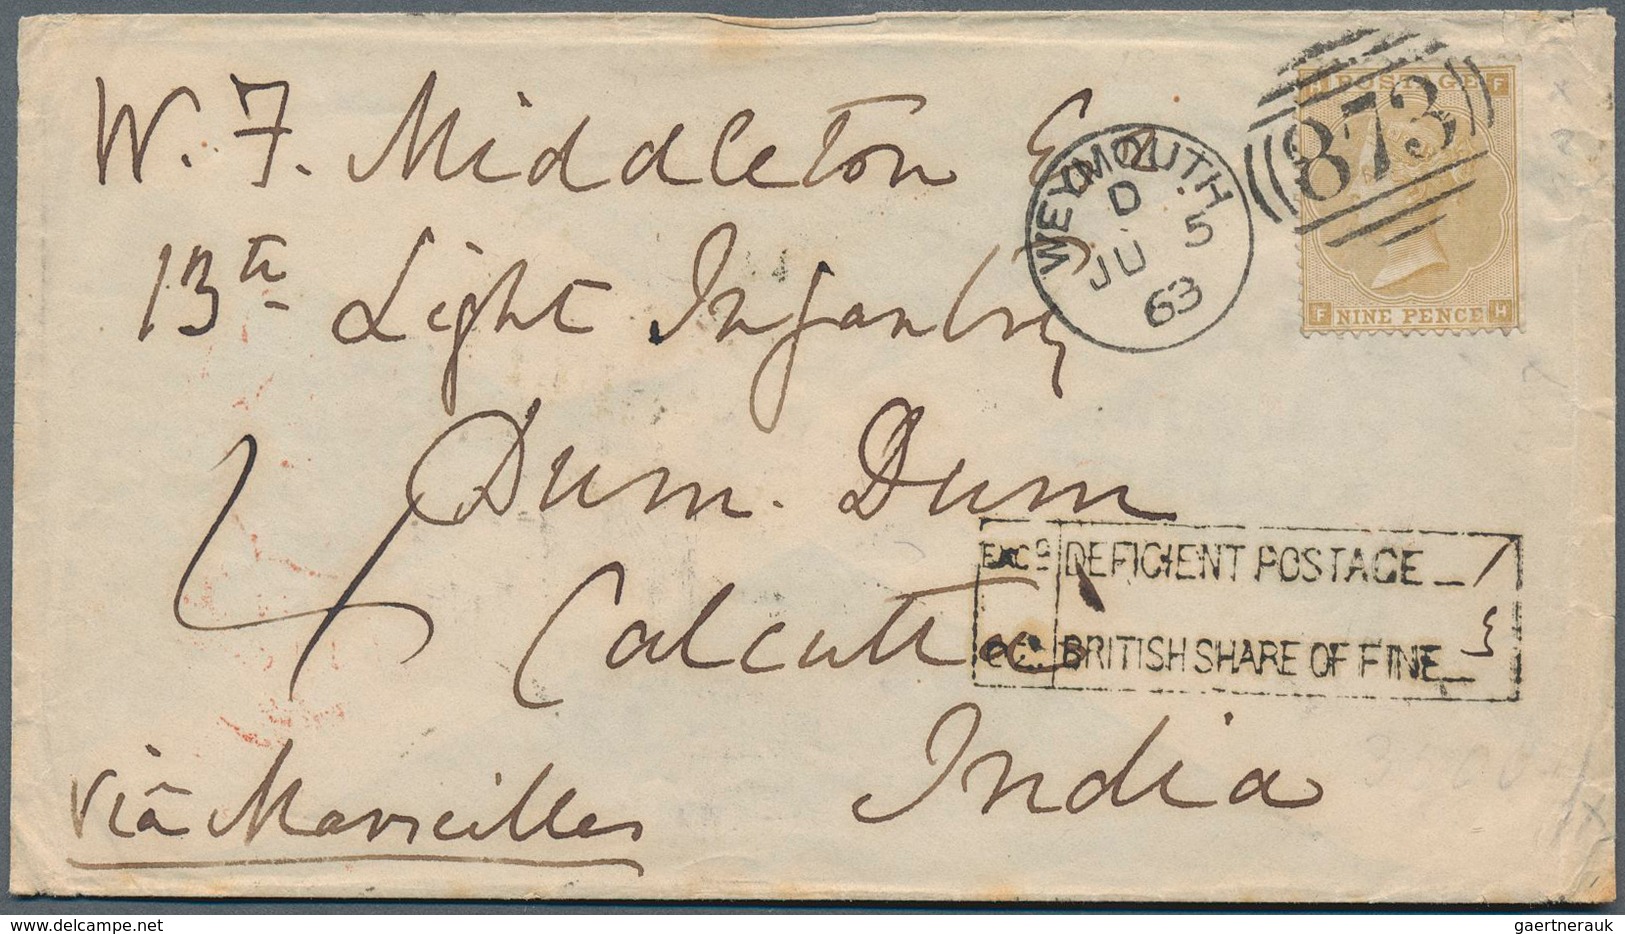 W. F. Middleton Esq.
13th Light Infantry
Dum. Dum
Calcutta
India
via Marseilles
WEYMOUTH
D
JU 5
63
873
H POSTAGE F
F NINE PENCE H
DEFICIENT POSTAGE
BRITISH SHARE OF FINE
delcampe.net
gaertnerauk